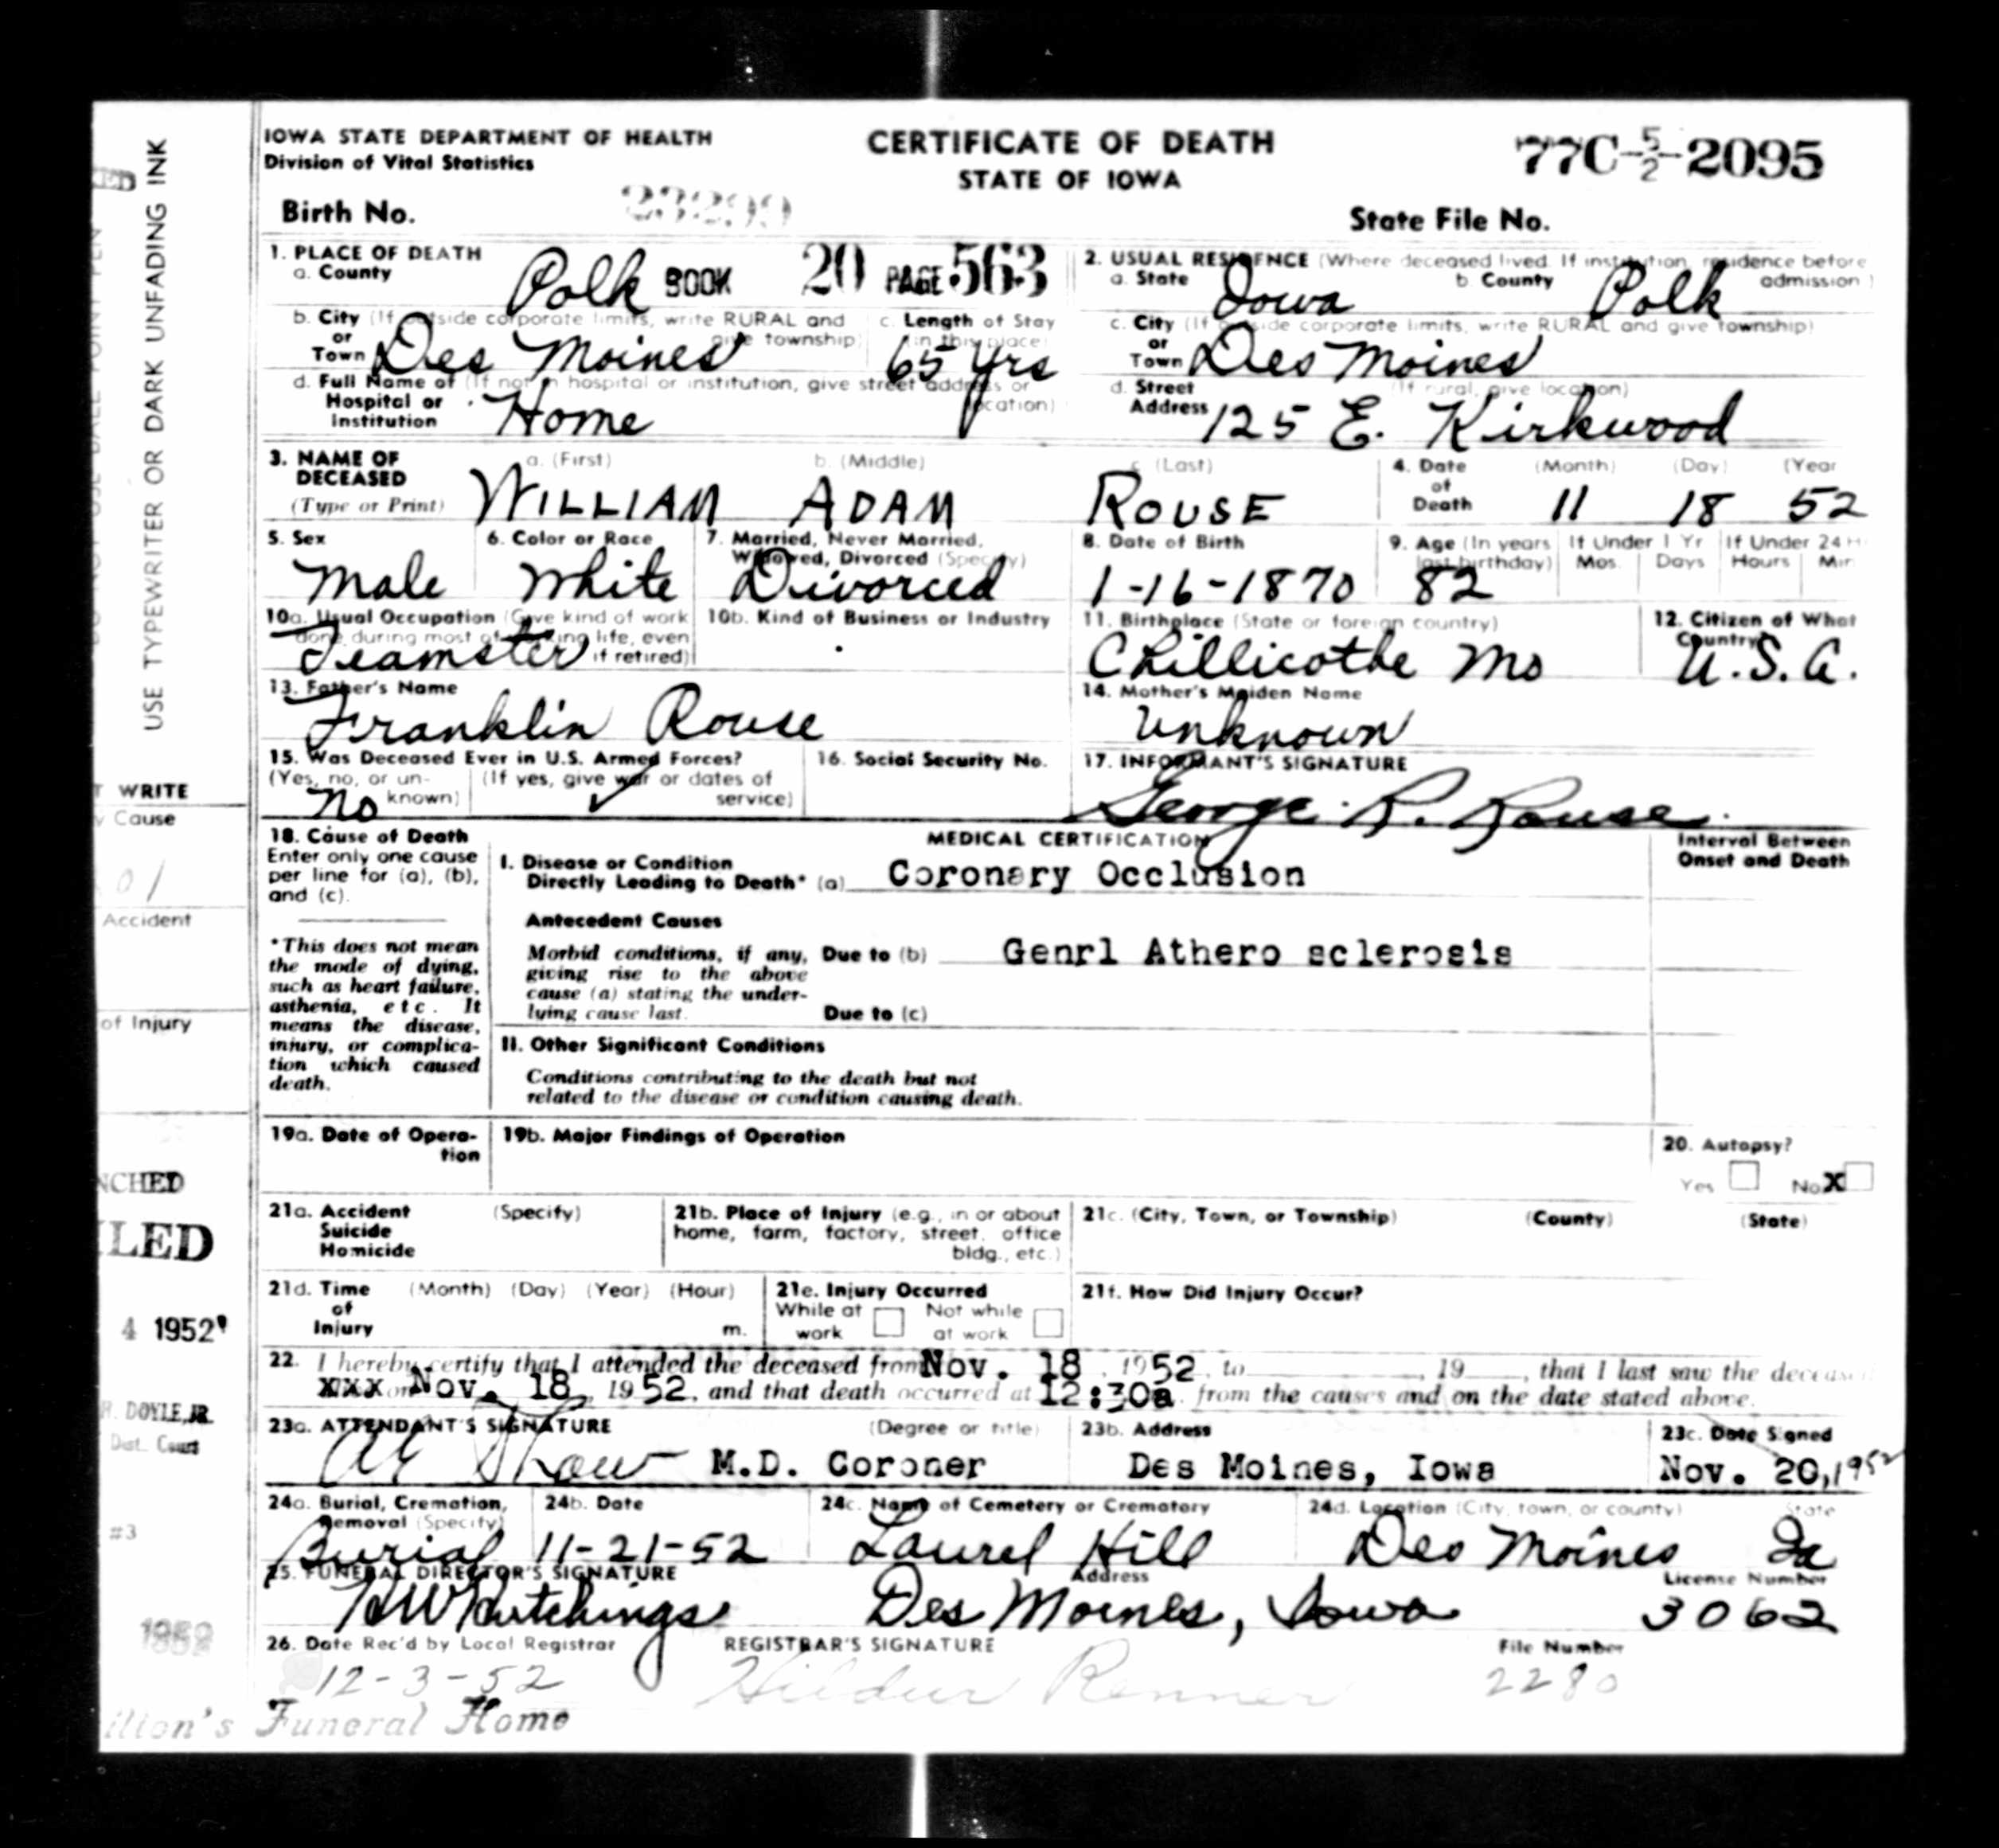 IOWA STATE DEPARTMENT OF HEALTH
Division of Vital Statistics
CERTIFICATE OF DEATH
STATE OF IOWA
77C-5/2-2095
Birth No. 23299
State File No.
USE TYPEWRITER OR DARK UNFADING INK
1. PLACE OF DEATH
a. County Polk BOOK 20 PAGE 563
2. USUAL RESIDENCE (Where deceased lived. If institution, residence before admission)
a. State Iowa b. County Polk
b. City (If outside corporate limits, write RURAL and give township)
or Town Des Moines
c. Length of Stay (in this place)
65 yrs
c. City (If outside corporate limits, write RURAL and give township)
or Town Des Moines
d. Full Name of (If not in hospital or institution, give street address or location)
Hospital or Institution Home
d. Street Address (If rural, give location)
125 E. Kirkwood
3. NAME OF DECEASED (Type or Print)
a. (First) b. (Middle) c. (Last)
WILLIAM ADAM ROUSE
4. Date of Death (Month) (Day) (Year
11 18 52
5. Sex
Male
6. Color or Race
White
7. Married, Never Married, Widowed, Divorced (Specify)
Divorced
8. Date of Birth
1-16-1870
9. Age (In years last birthday)
82
If Under 1 Yr
Mos. Days
If Under 24 H
Hours Min
10a. Usual Occupation (Give kind of work done during most of working life, even if retired)
Teamster
10b. Kind of Business or Industry
11. Birthplace (State or foreign country)
Chillicothe Mo
12. Citizen of What Country?
U.S.A.
13. Father's Name
Franklin Rouse
14. Mother's Maiden Name
Unknown
15. Was Deceased Ever in U.S. Armed Forces?
(Yes, no, or unknown) (If yes, give war or dates of service)
No ✓
16. Social Security No.
17. INFORMANT'S SIGNATURE
George R. Rouse
T WRITE
y Cause
Accident
of Injury
18. Cause of Death
Enter only one cause per line for (a), (b), and (c).
MEDICAL CERTIFICATION
Interval Between Onset and Death
I. Disease or Condition
Directly Leading to Death* (a) Coronary Occlusion
Antecedent Causes
Morbid conditions, if any, giving rise to the above cause (a) stating the underlying cause last.
Due to (b) Genrl Athero sclerosis
Due to (c)
*This does not mean the mode of dying, such as heart failure, asthenia, etc. It means the disease, injury, or complication which caused death.
II. Other Significant Conditions
Conditions contributing to the death but not
related to the disease or condition causing death.
19a. Date of Operation
19b. Major Findings of Operation
20. Autopsy?
Yes No X
NCHED
LED
21a. Accident Suicide Homicide (Specify)
21b. Place of Injury (e.g., in or about home, farm, factory, street, office bldg., etc.)
21c. (City, Town, or Township) (County) (State)
21d. Time of Injury (Month) (Day) (Year) (Hour) m.
21e. Injury Occurred
While at work Not while at work
21f. How Did Injury Occur?
4 1952
22. I hereby certify that I attended the deceased from Nov. 18, 1952, to , 19 , that I last saw the deceased
xxx on Nov. 18, 1952, and that death occurred at 12:30a. from the causes and on the date stated above.
DOYLE, JR.
Dist. Court
23a. ATTENDANT'S SIGNATURE (Degree or title)
Shaw M.D. Coroner
23b. Address
Des Moines, Iowa
23c. Date Signed
Nov. 20, 1952
24a. Burial, Cremation, Removal (Specify)
Burial
24b. Date
11-21-52
24c. Name of Cemetery or Crematory
Laurel Hill
24d. Location (City, town, or county) State
Des Moines Ia
#3
25. FUNERAL DIRECTOR'S SIGNATURE
HW Hutchings
Address
Des Moines, Iowa
License Number
3062
26. Date Rec'd by Local Registrar
12-3-52
REGISTRAR'S SIGNATURE
Hildur Renner
File Number
2280
ilton's Funeral Home